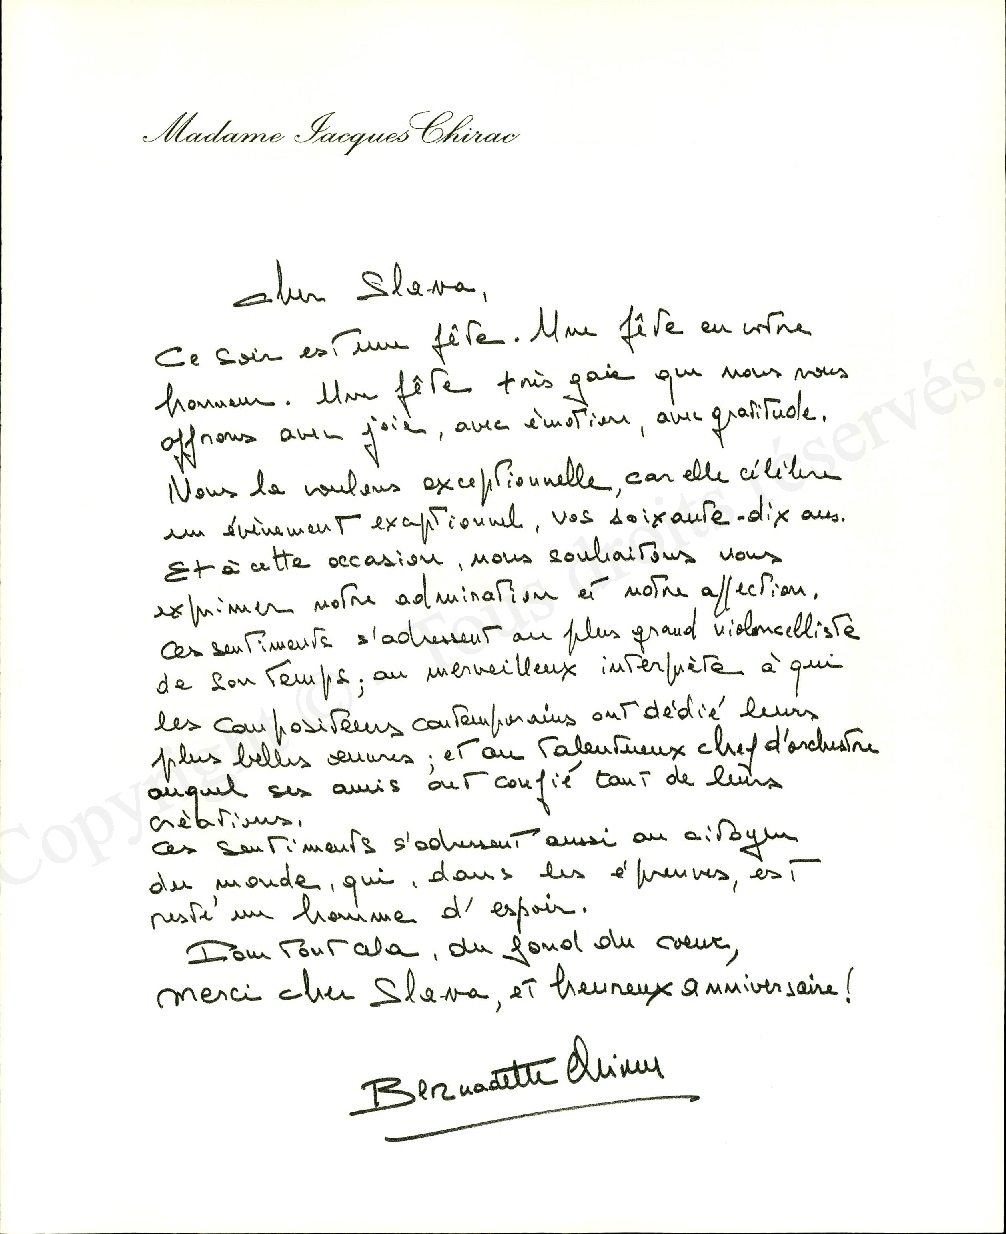 Madame Jacques Chirac
Cher Slava,
Ce soir est une fête. Une fête en votre
honneur. Une fête très gaie que nous vous
offrons avec joie, avec émotion, avec gratitude.
Nous la voulons exceptionnelle, car elle célèbre
un évènement exceptionnel, vos soixante-dix ans.
Et à cette occasion, nous souhaitons vous
exprimer notre admiration et notre affection.
Ces sentiments s'adressent au plus grand violoncelliste
de son temps ; au merveilleux interprète à qui
les compositeurs contemporains ont dédié leurs
plus belles œuvres ; et au talentueux chef d'orchestre
auquel ses amis ont confié tant de leurs
créations.
Ces sentiments s'adressent aussi au citoyen
du monde, qui, dans les épreuves, est
resté un homme d'espoir.
Pour tout cela, du fond du cœur,
merci cher Slava, et heureux anniversaire !
Bernadette Chirac
Copyright © Tous droits réservés.